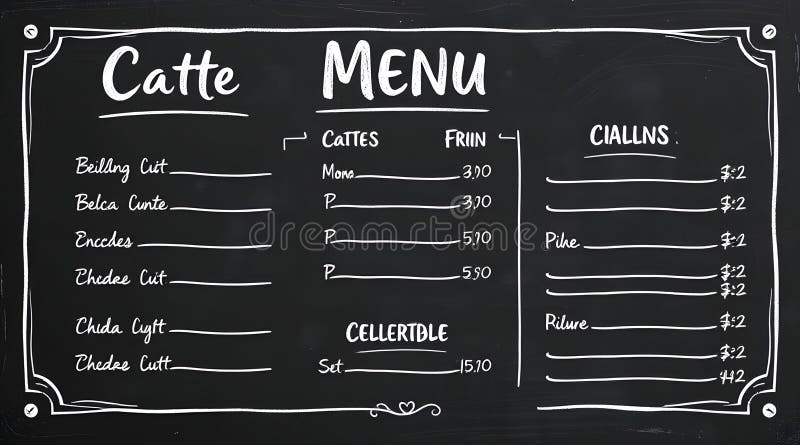 Catte MENU
Beilding Cuit
Belca Cunte
Enccdes
Ehcdze Cuit
Chuda Cyft
Chedze Cutt
CATTES FRIIN
Mona 3.90
P 3.90
P 5.90
P 5.90
CELLERTBLE
Set 15.90
CIALLNS
$:2
$:2
Pihe $:2
$:2
$:2
Rilure $:2
$:2
442
dreamstime